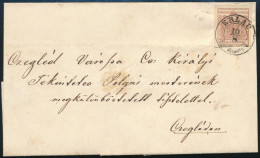 Czegléd Városa Cs: Királyi
Tekintetes Polgár mesterének
megkülönböztetett tisztelettel.
Czegléden
10